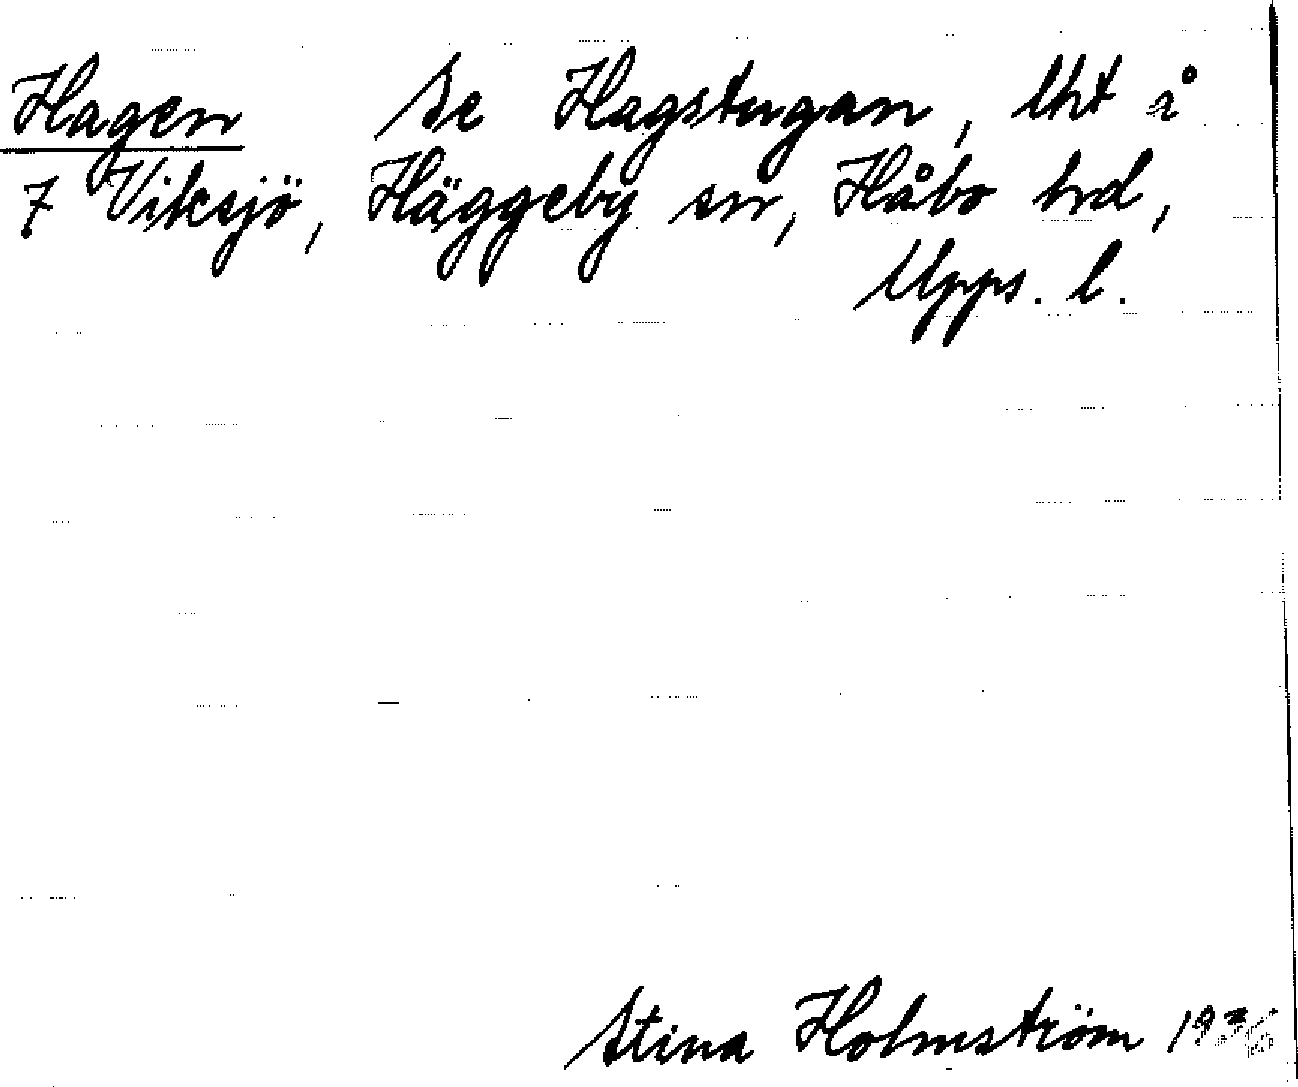 Hagen Se Hagstugan, lht å
7 Viksjö, Häggeby sn, Håbo hd,
Upps. l.
Stina Holmström